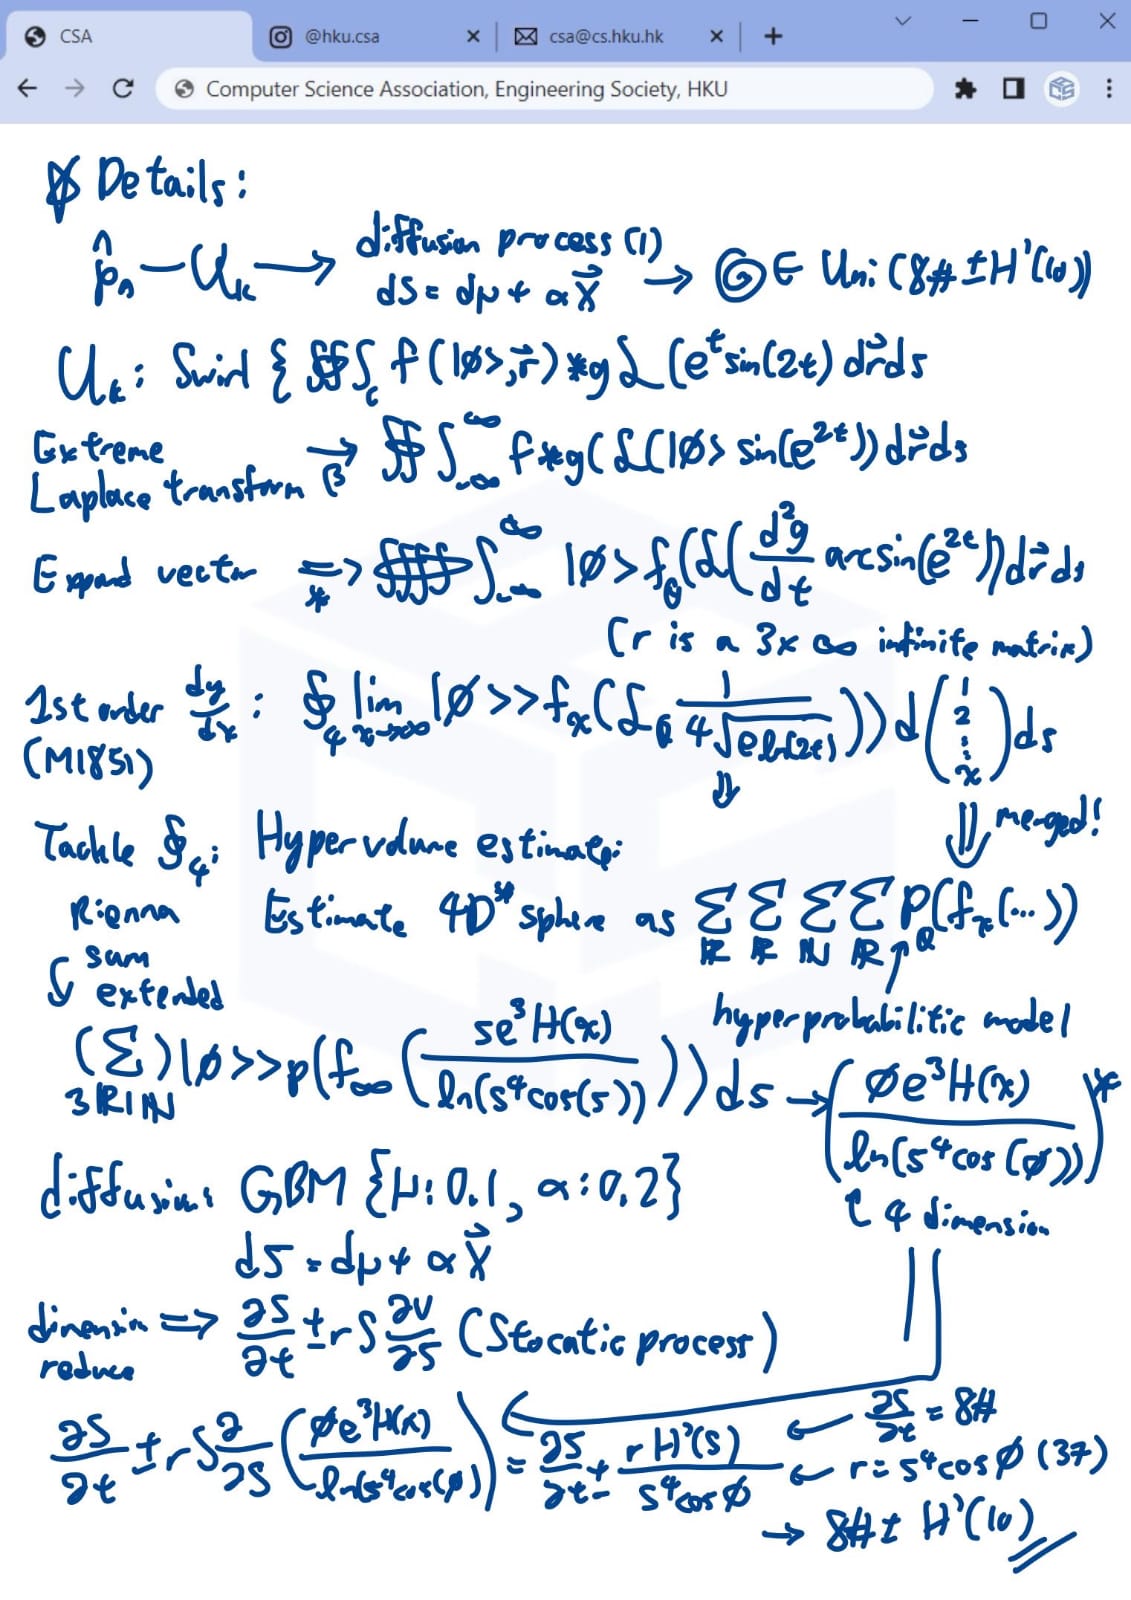 CSA @hku.csa csa@cs.hku.hk
Computer Science Association, Engineering Society, HKU
Details:
p̂ₙ — Uₖ → diffusion process (1) dS = dμ + α X⃗ → ∈ Uni (8# ± H'(10))
Uₖ: Swirl { ∯∫_c f(|ø>, r⃗) * g ℒ (e^t sin(2t) dr⃗ds
Extreme Laplace transform →_β ∯∫_{-∞}^{∞} f*g(ℒ(|ø> sin(e^{2t}))dr⃗ds
Expand vector ⇒_* ∫_{-∞}^{∞} |ø> f_θ(ℒ(d²g/dt arcsin(e^{2t}))dr⃗ds
(r is a 3x ∞ infinite matrix)
1st order dy/dx : ∮₄ lim_{x→∞} |ø>>fₓ(ℒ 1/(4√(e ln(2t))))d(1 2 ⋮ x)ds
(M1851)
⇓ ⇓ merged!
Tackle ∮₄: Hypervolume estimate:
Estimate 4D* sphere as Σ_R Σ_R Σ_N Σ_R P_Q(fₓ(...))
Rienna sum
↳ extended
hyperprobabilitic model
(Σ)_{3RIN} |ø>>p(f_∞(se³H(x)/ln(s⁴cos(s))))ds → (øe³H(x)/ln(s⁴cos(ø)))*
↑ 4 dimension
diffusion: GBM {μ: 0.1, α: 0.2}
dS = dμ + α X⃗
dimension reduce ⇒ ∂S/∂t ± rS ∂V/∂S (Stocatic process)
∂S/∂t ± rS ∂/∂S (øe³H(x)/ln(s⁴cos(ø))) = ∂S/∂t ± rH'(S)/s⁴cosø ← ∂S/∂t = 8#
← r = s⁴cosø (37)
→ 8# ± H'(10)